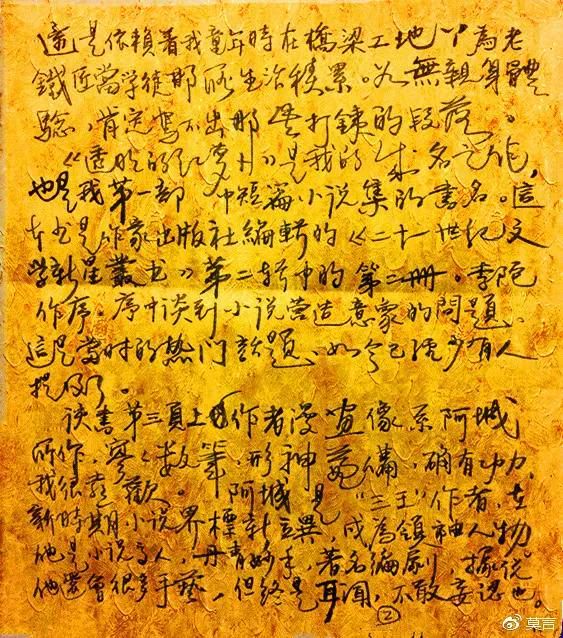 這是依賴着我童年時在橋梁工地上為老
鐵匠當学徒那段生活積累。如無親身體
驗，肯定寫不出那些打鐵的段落。
《透明的红萝卜》是我的成名之作，
也是我第一部中短篇小说集的書名。這
本书是作家出版社編輯的《二十一世紀文
学新星叢书》第二辑中的第二冊。李陀
作序。序中谈到小说营造意象的問題。
這是當时的热門話題，如今已很少有人
提及了。
该書第三頁上的作者漫画像系阿城
所作，寥寥数筆，形神兼備，确有功力，
我很喜歡。阿城是“三王”作者，在
新時期小说界標新立異，成為領袖人物。
他是小说高人，丹青妙手，著名編劇，據说
他還會很多手藝，但終是耳闻，不敢妄認也。
②
莫言